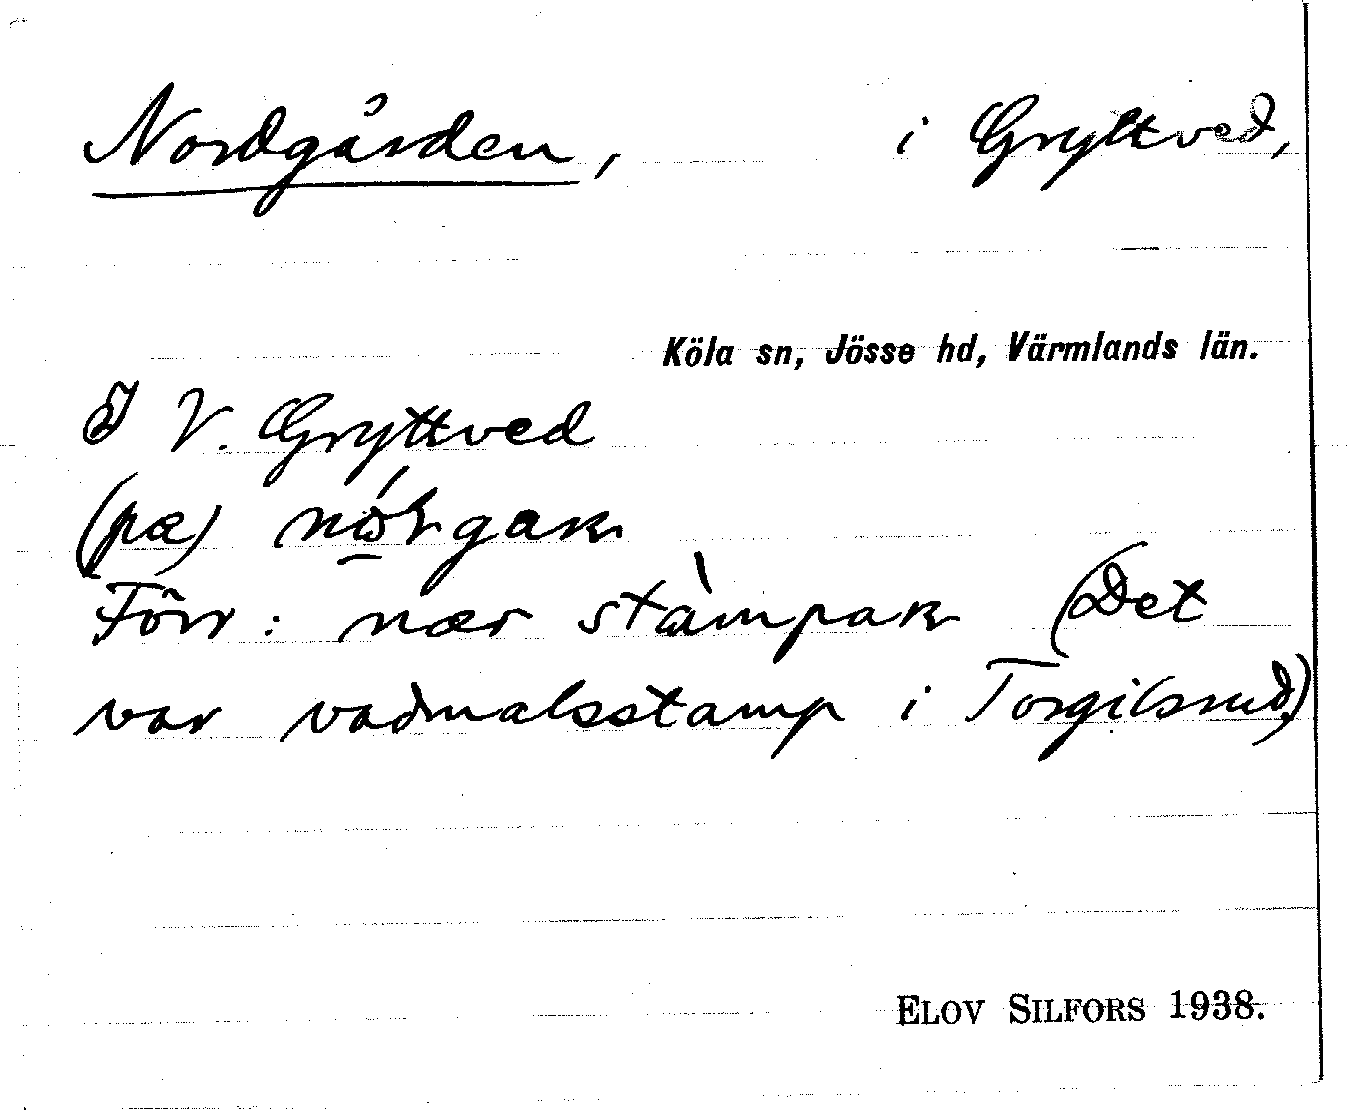 Nordgården, i Gryttved,
Köla sn, Jösse hd, Värmlands län.
I V. Gryttved
(pæ)
Förr: nær stàmpak (Det
var vadmalsstamp i Torgilsrud)
ELOV SILFORS 1938.